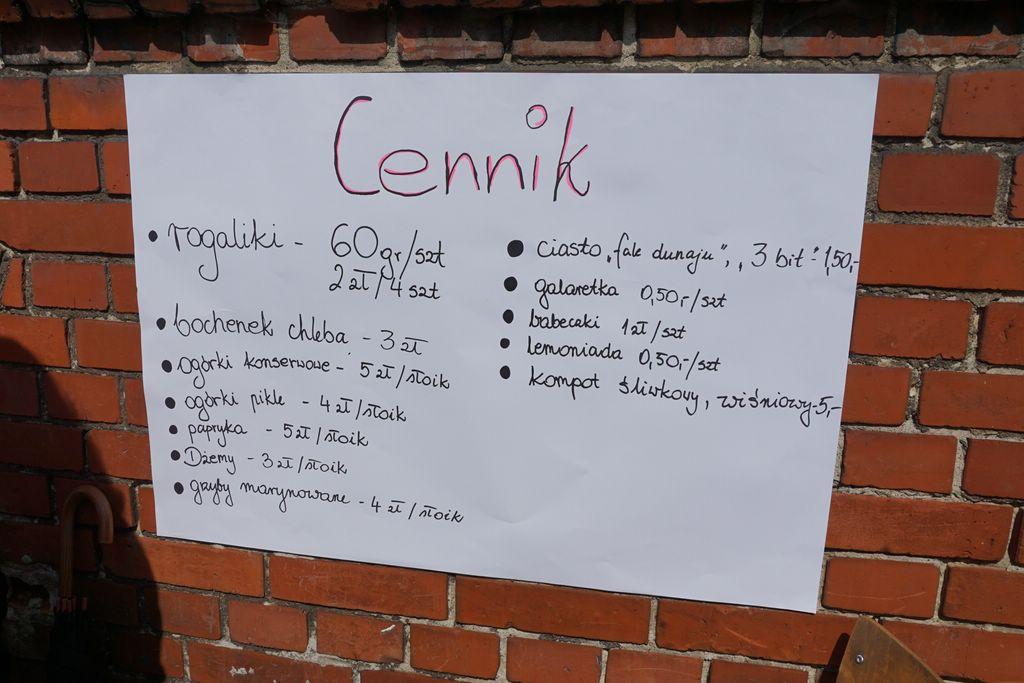 Cennik
• rogaliki - 60gr/szt
2 zł/4 szt
• bochenek chleba - 3 zł
• ogórki konserwowe - 5 zł/słoik
• ogórki pikle - 4 zł/słoik
• papryka - 5 zł/słoik
• Dżemy - 3 zł/słoik
• grzyby marynowane - 4 zł/słoik
• ciasto „fale dunaju", „3 bit - 1,50,-
• galaretka 0,50,-/szt
• babeczki 1 zł/szt
• lemoniada 0,50,-/szt
• kompot śliwkowy, wiśniowy-5,-